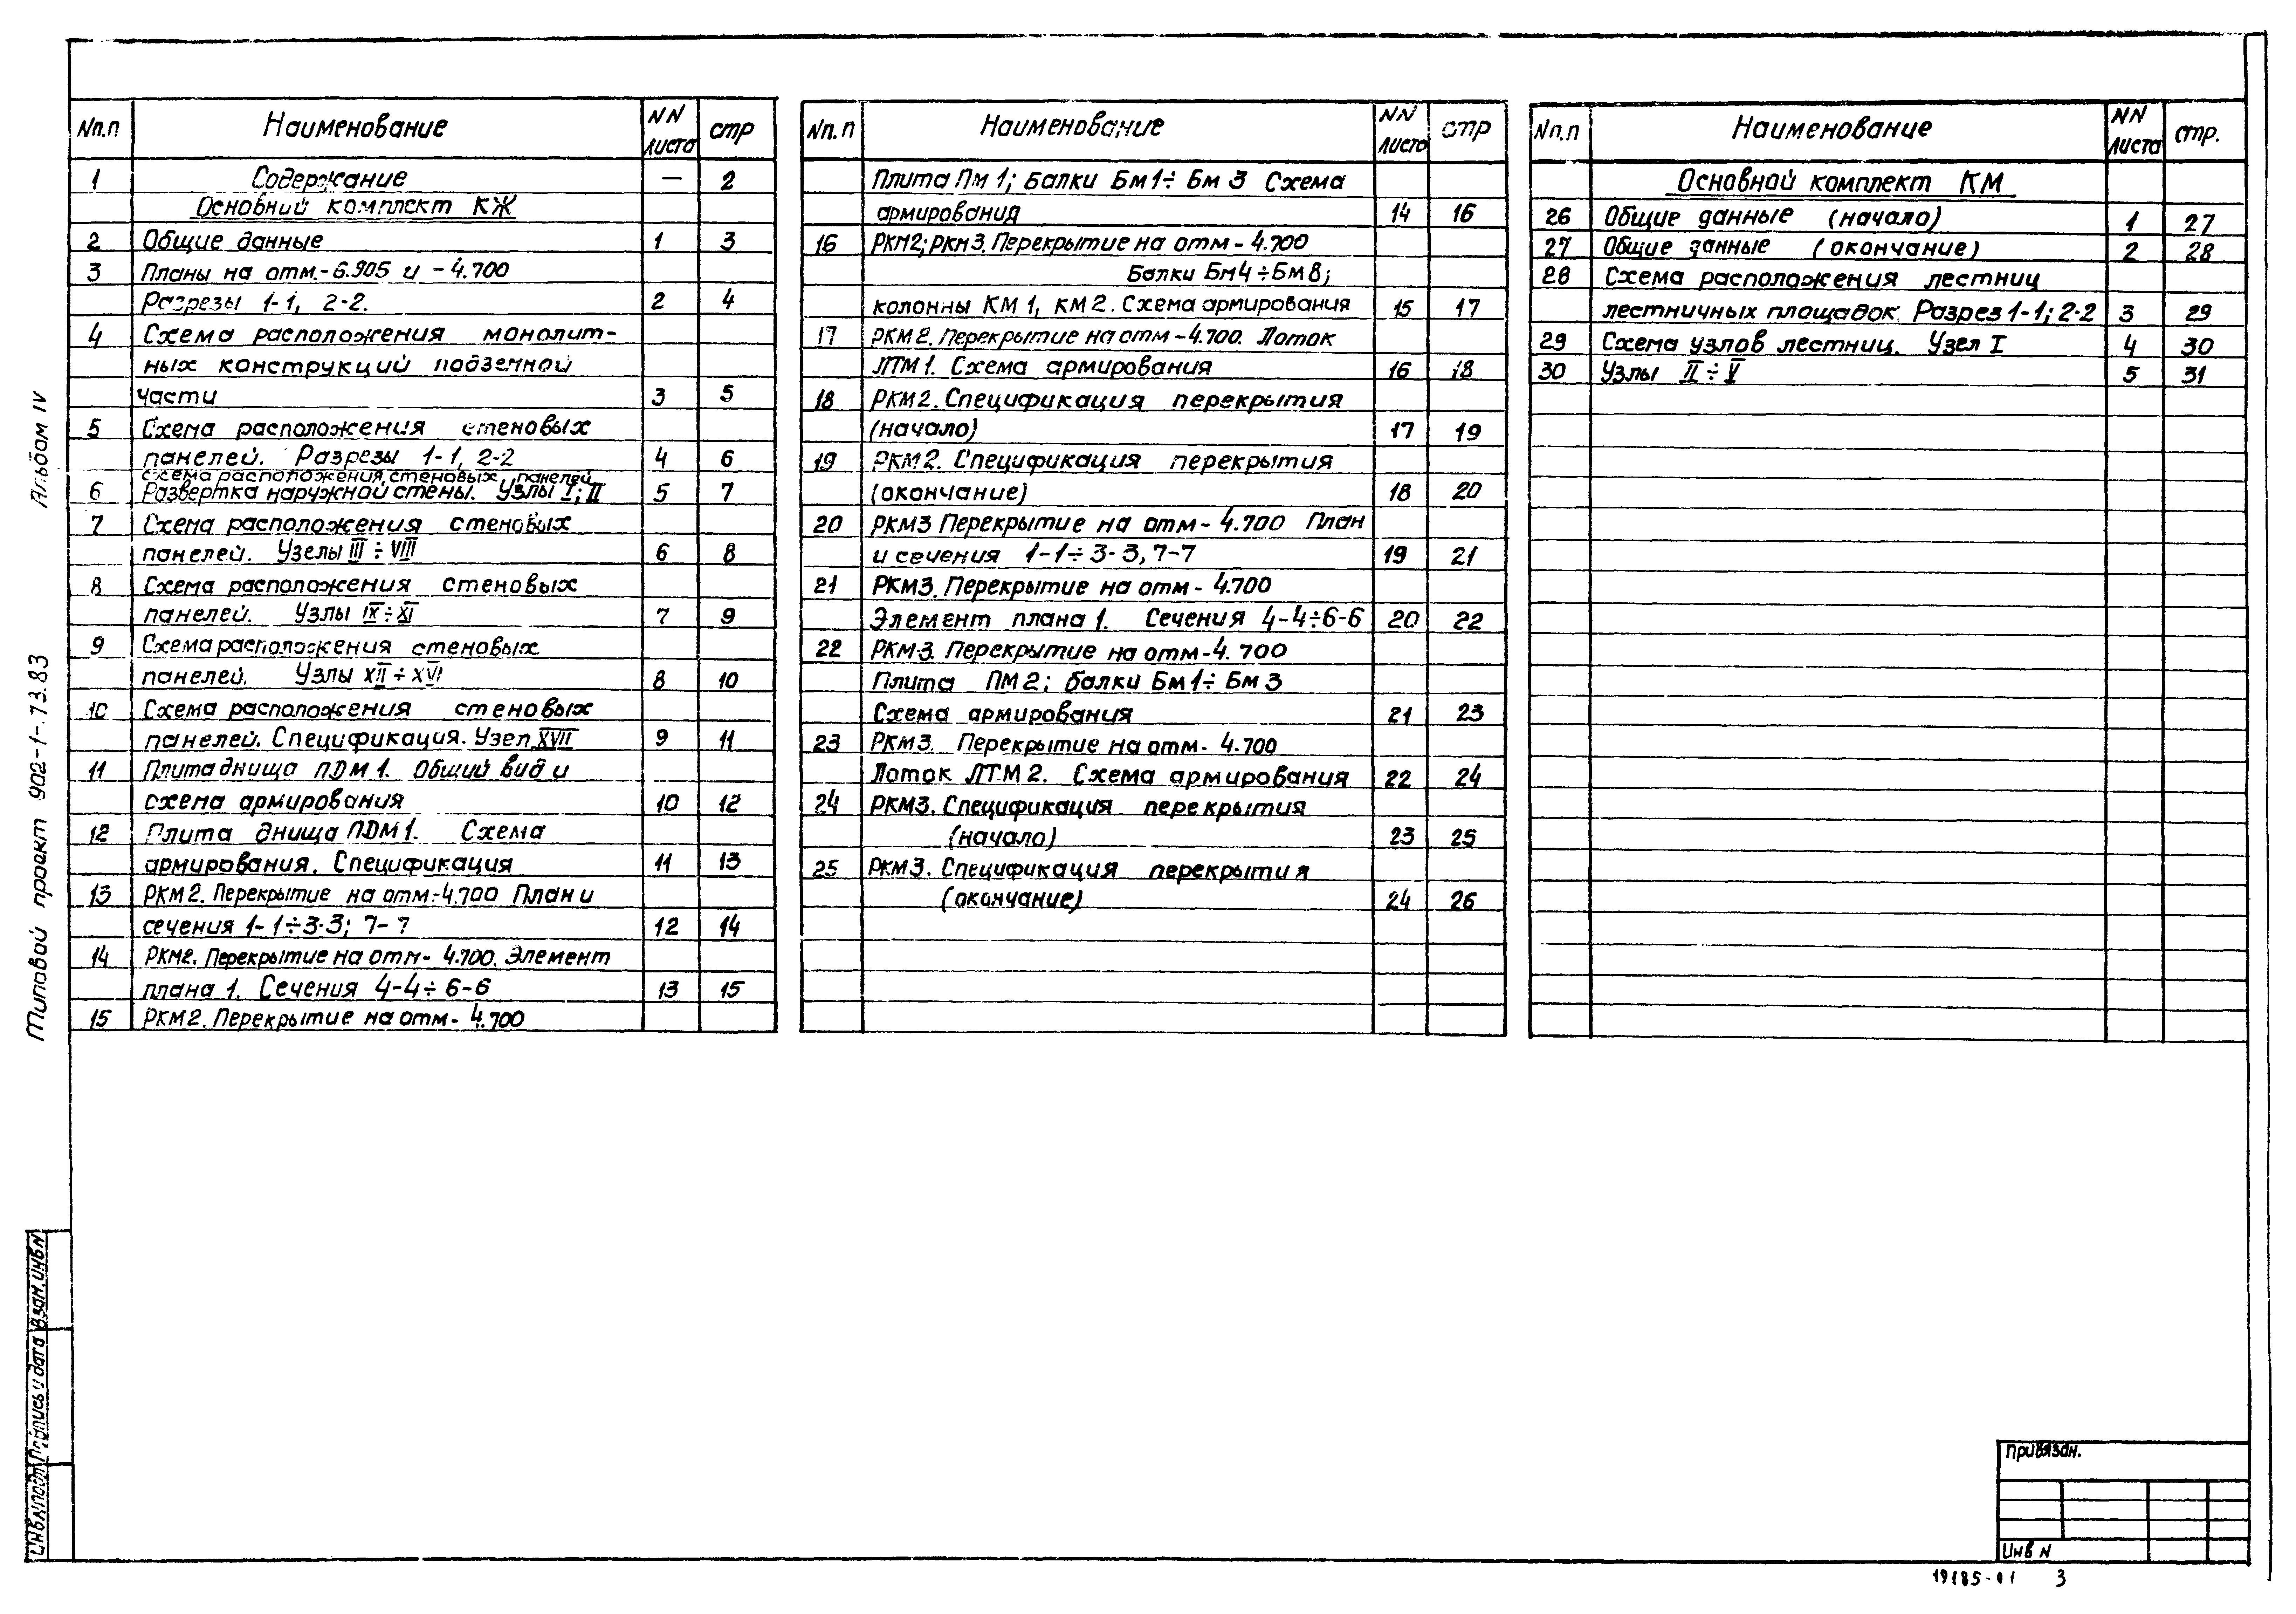 Nп.п Наименование NN листа стр
1 Содержание — 2
Основний комплект КЖ
2 Общие данные 1 3
3 Планы на отм.-6.905 и -4.700
Разрезы 1-1, 2-2. 2 4
4 Схема расположения монолит-
ных конструкций подземной
части 3 5
5 Схема расположения стеновых
панелей. Разрезы 1-1, 2-2 4 6
схема расположения стеновых панелей
6 Развертка наружной стены. Узлы I; II 5 7
7 Схема расположения стеновых
панелей. Узелы III ÷ VIII 6 8
8 Схема расположения стеновых
панелей. Узлы IX ÷ XI 7 9
9 Схема расположения стеновых
панелей. Узлы XII ÷ XVI 8 10
10 Схема расположения стеновых
панелей. Спецификация. Узел XVII 9 11
11 Плита днища ПДМ1. Общий вид и
схема армирования 10 12
12 Плита днища ПДМ1. Схема
армирования. Спецификация 11 13
13 РКМ2. Перекрытие на отм.-4.700 План и
сечения 1-1÷3-3; 7-7 12 14
14 РКМ2. Перекрытие на отм- 4.700. Элемент
плана 1. Сечения 4-4÷6-6 13 15
15 РКМ2. Перекрытие на отм- 4.700
Nп.п Наименование NN листа стр
Плита Пм1; балки Бм1÷ Бм 3 Схема
армирования 14 16
16 РКМ2; РКМ3. Перекрытие на отм - 4.700
Балки Бм4÷Бм8;
колонны КМ1, КМ2. Схема армирования 15 17
17 РКМ2. Перекрытие на отм -4.700. Лоток
ЛТМ1. Схема армирования 16 18
18 РКМ2. Спецификация перекрытия
(начало) 17 19
19 РКМ2. Спецификация перекрытия
(окончание) 18 20
20 РКМ3 Перекрытие на отм- 4.700 План
и сечения 1-1÷3-3, 7-7 19 21
21 РКМ3. Перекрытие на отм - 4.700
Элемент плана 1. Сечения 4-4÷6-6 20 22
22 РКМ3. Перекрытие на отм-4.700
Плита ПМ2; балки Бм1÷ Бм 3
Схема армирования 21 23
23 РКМ3. Перекрытие на отм- 4.700
Лоток ЛТМ2. Схема армирования 22 24
24 РКМ3. Спецификация перекрытия
(начало) 23 25
25 РКМ3. Спецификация перекрытия
(окончание) 24 26
Nп.п Наименование NN листа стр.
Основной комплект КМ
26 Общие данные (начало) 1 27
27 Общие данные (окончание) 2 28
28 Схема расположения лестниц
лестничных площадок. Разрез 1-1; 2-2 3 29
29 Схема узлов лестниц. Узел I 4 30
30 Узлы II ÷ V 5 31
Альбом IV
Типовой проект 902-1-73.83
Взам. инв N
Подпись и дата
Инв. N подл
Привязан.
Инв N
19185-01 3